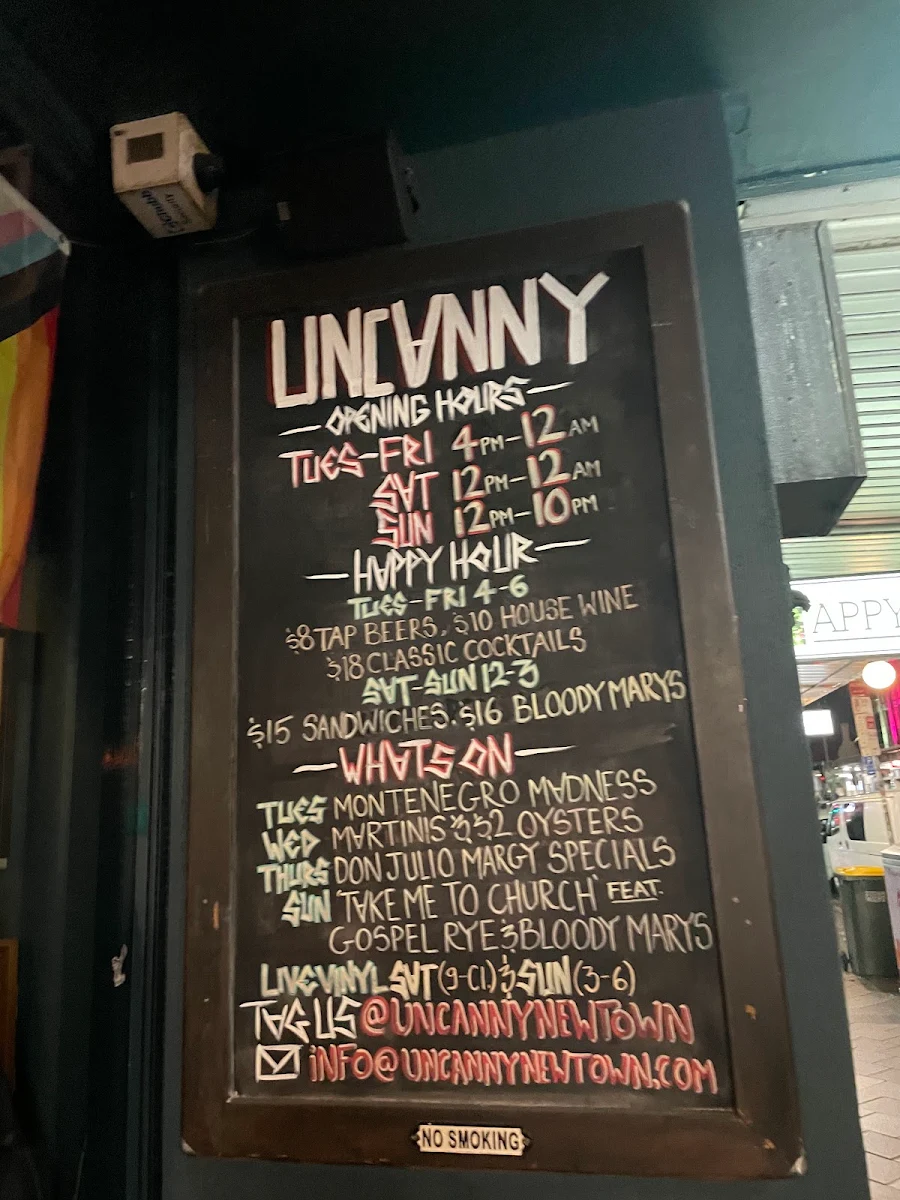 Chubb
Security
UNCANNY
OPENING HOURS
TUES-FRI 4PM-12AM
SAT 12PM-12AM
SUN 12PM-10PM
HAPPY HOUR
TUES-FRI 4-6
$8 TAP BEERS, $10 HOUSE WINE
$18 CLASSIC COCKTAILS
SAT-SUN 12-3
$15 SANDWICHES, $16 BLOODY MARYS
WHATS ON
TUES MONTENEGRO MADNESS
WED MARTINIS & $2 OYSTERS
THURS DON JULIO MARGY SPECIALS
SUN 'TAKE ME TO CHURCH' FEAT.
GOSPEL RYE & BLOODY MARY'S
LIVE VINYL SAT (9-CL) & SUN (3-6)
TAG US @UNCANNYNEWTOWN
INFO@UNCANNYNEWTOWN.COM
NO SMOKING
APPY